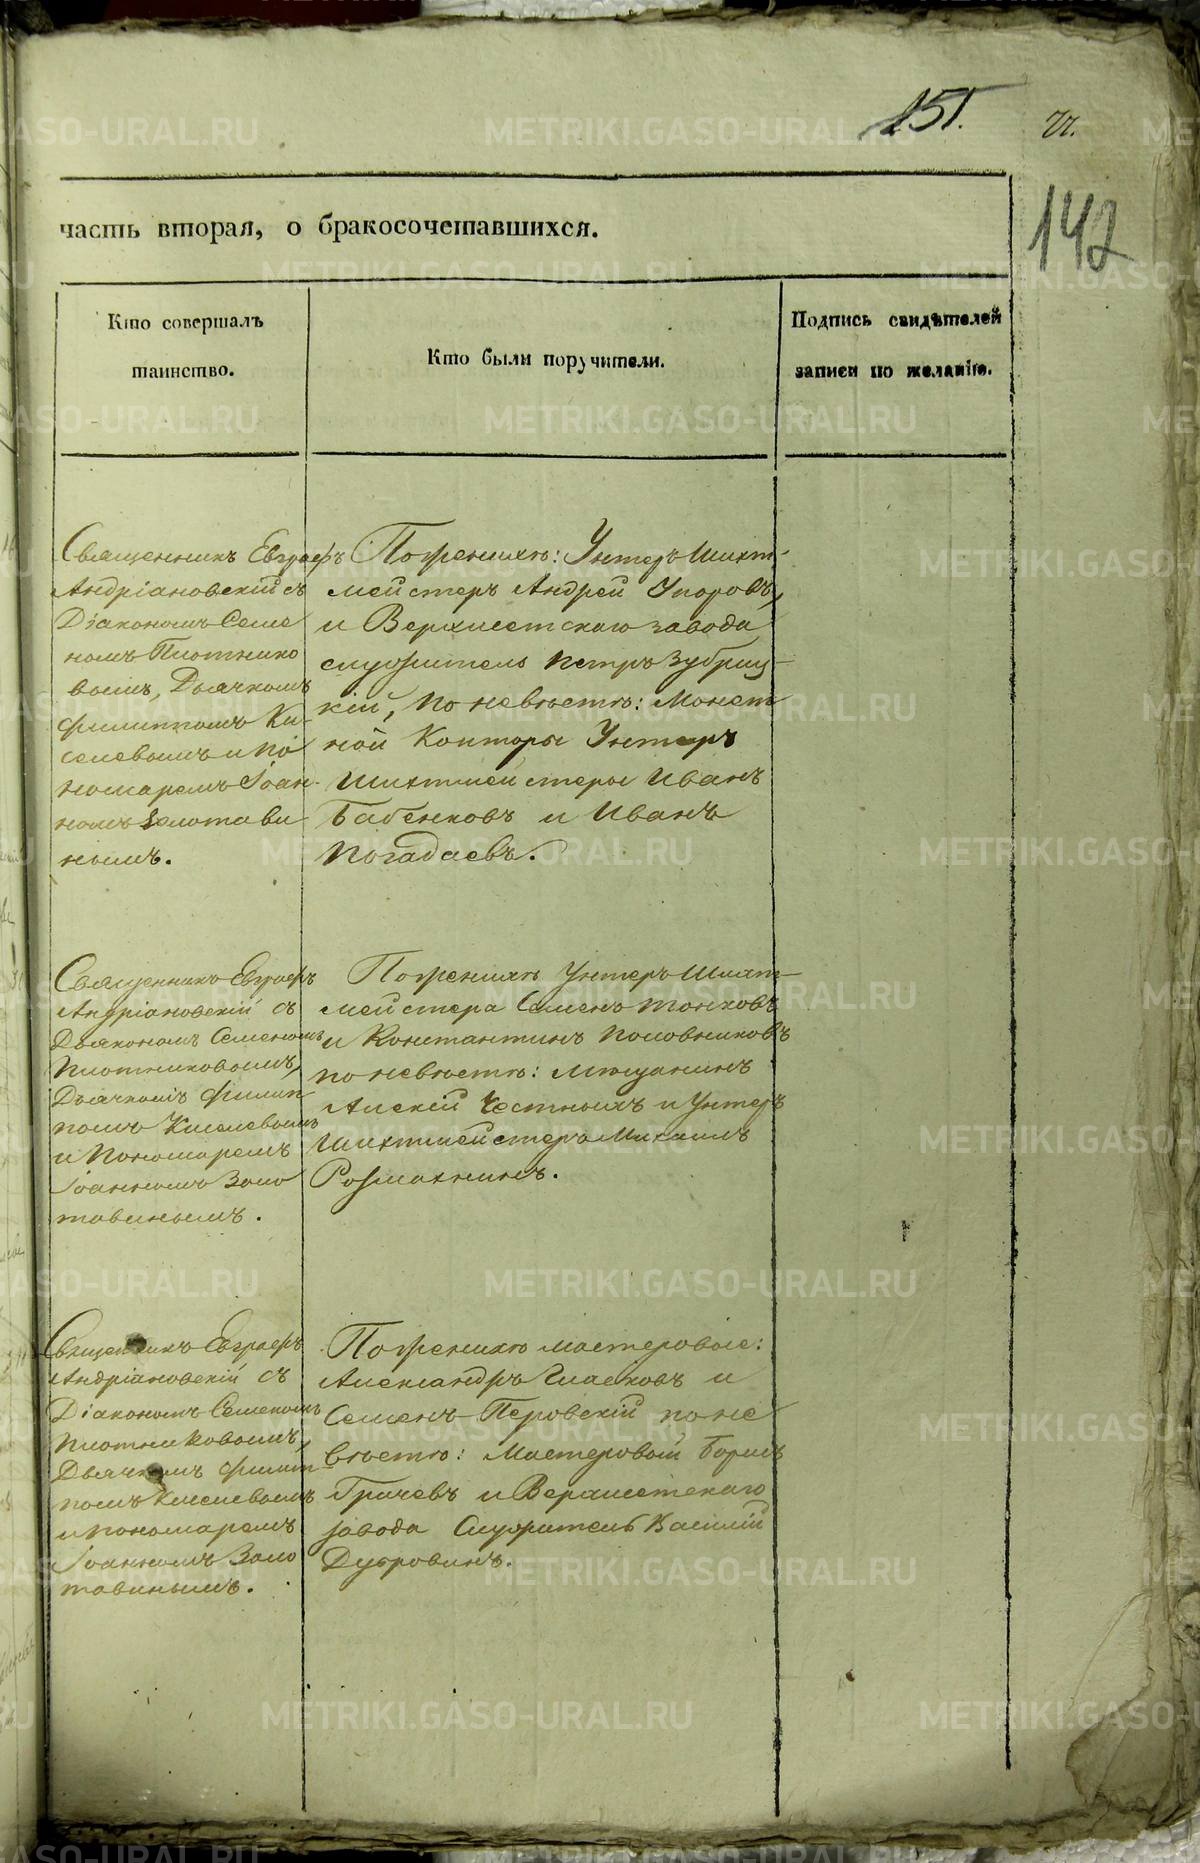 151.
71.
142
часть вторая, о бракосочетавшихся.
Кто совершалъ
таинство.
Кто были поручители.
Подпись свидѣтелей
записи по желанію.
Священникъ Евграфъ
Андріановскій съ
Діакономъ Семе
номъ Плотнико
вымъ, Дьячкомъ
Филиппомъ Ки-
селевымъ и По
номаремъ Іоан-
номъ Золотави
нымъ.
По женихѣ: Унтеръ Шихт-
мейстеръ Андрей Упоровъ,
и Верхисетскаго завода
служитель Петръ Зубриц-
кій, по невѣстѣ: Монет
ной Конторы Унтеръ
Шихтмейстеры Иванъ
Бабенковъ и Иванъ
Погадаевъ.
Священникъ Евграфъ
Андріановскій съ
Дьякономъ Семеномъ
Плотниковымъ,
Дьячкомъ Филип
помъ Киселевымъ
и Пономаремъ
Іоанномъ Золо
тавинымъ.
По женихѣ Унтеръ Шихт-
мейстера Семенъ Тонковъ
и Константинъ Половниковъ
по невѣстѣ: Мѣщанинъ
Алексѣй Честныхъ и Унтеръ
Шихтмейстеръ Михаилъ
Розмахнинъ.
Священникъ Евграфъ
Андріановскій съ
Діакономъ Семеномъ
Плотниковымъ,
Дьячкомъ Филип-
помъ Киселевымъ
и Пономаремъ
Іоанномъ Золо
тавинымъ.
По женихѣ мастеровые:
Александръ Глазковъ и
Семенъ Перовскій по не
вѣстѣ: Мастеровой Борисъ
Грачевъ и Верхисетскаго
завода Служитель Василій
Дубровинъ.
METRIKI.GASO-URAL.RU